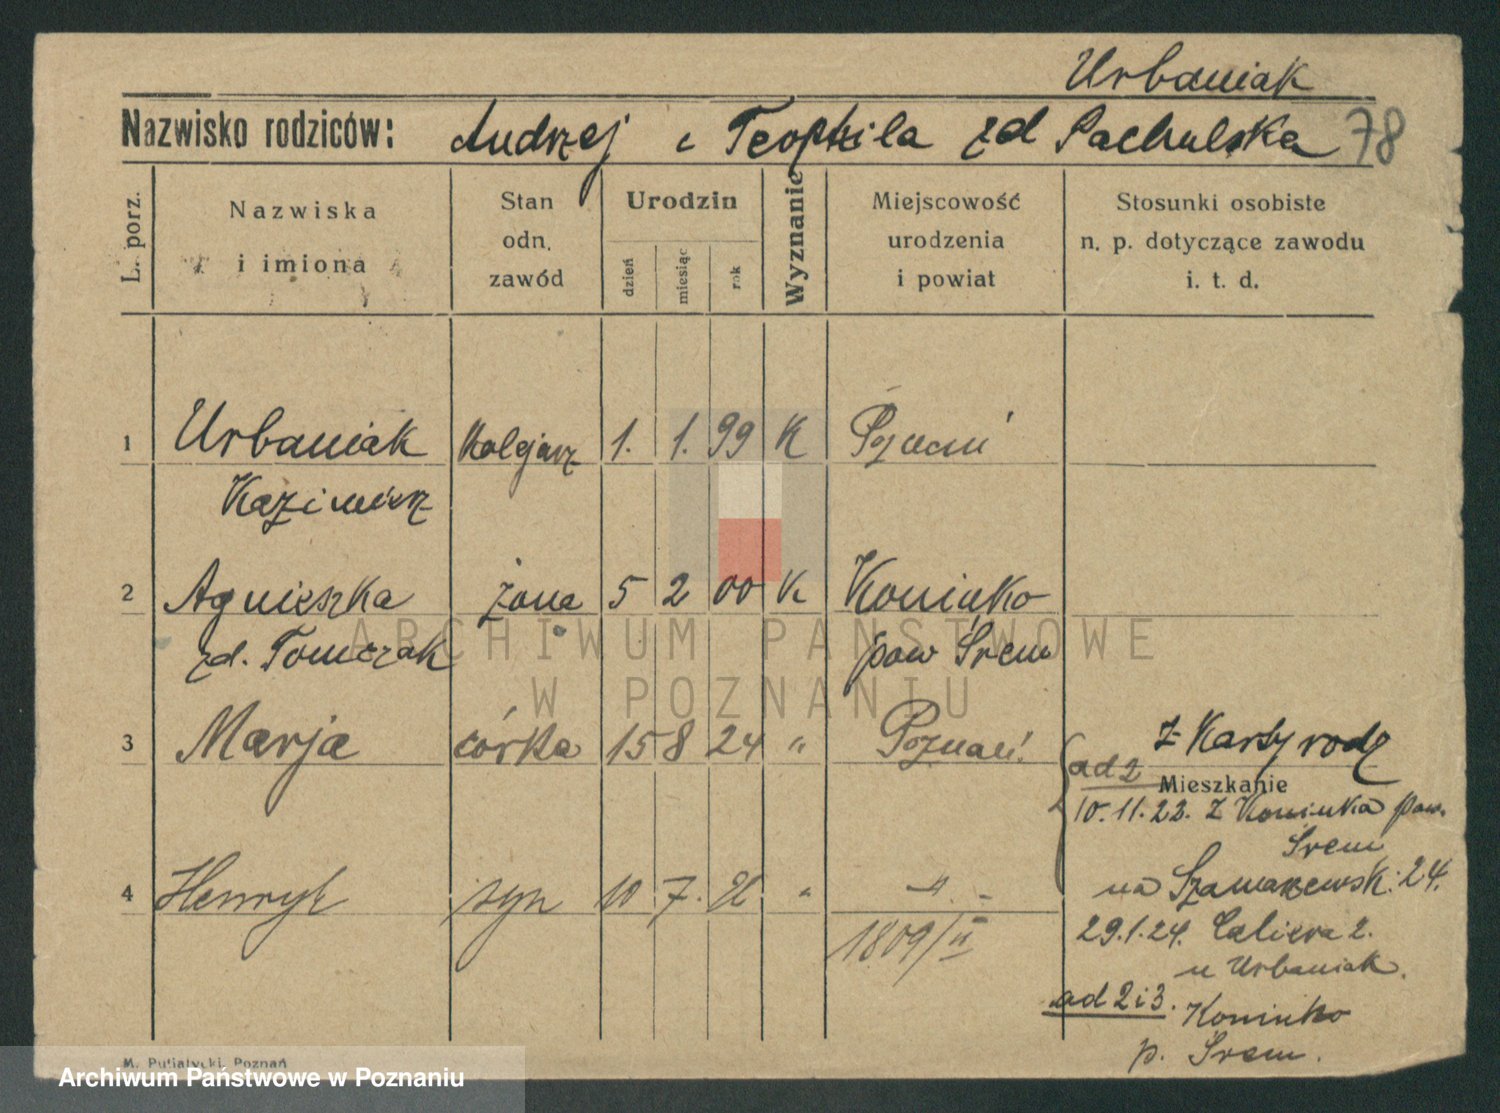 Urbaniak
Nazwisko rodziców: Andrzej i Teophila zd Pachulska 78
L. porz.
Nazwiska
i imiona
Stan
odn.
zawód
Urodzin
dzień
miesiąc
rok
Wyznanie
Miejscowość
urodzenia
i powiat
Stosunki osobiste
n. p. dotyczące zawodu
i. t. d.
1 Urbaniak kolejarz 1. 1. 99 K Poznań
Kazimierz
2 Agnieszka żona 5 2 00 K Koninko
zd. Tomczak pow Śrem
ARCHIWUM PAŃSTWOWE
W POZNANIU
3 Marja córka 15 8 24 " Poznań
Z Karty rodz
ad 2 Mieszkanie
10.11.22. Z Koninka pow.
Śrem
4 Henryk syn 10 7. 26 " -"-
na Szamarzewsk. 24.
1809/II
29.1.24. Caliera 2.
u Urbaniak.
ad 2 i 3. Koninko
p. Śrem.
M. Putiatycki, Poznań
Archiwum Państwowe w Poznaniu